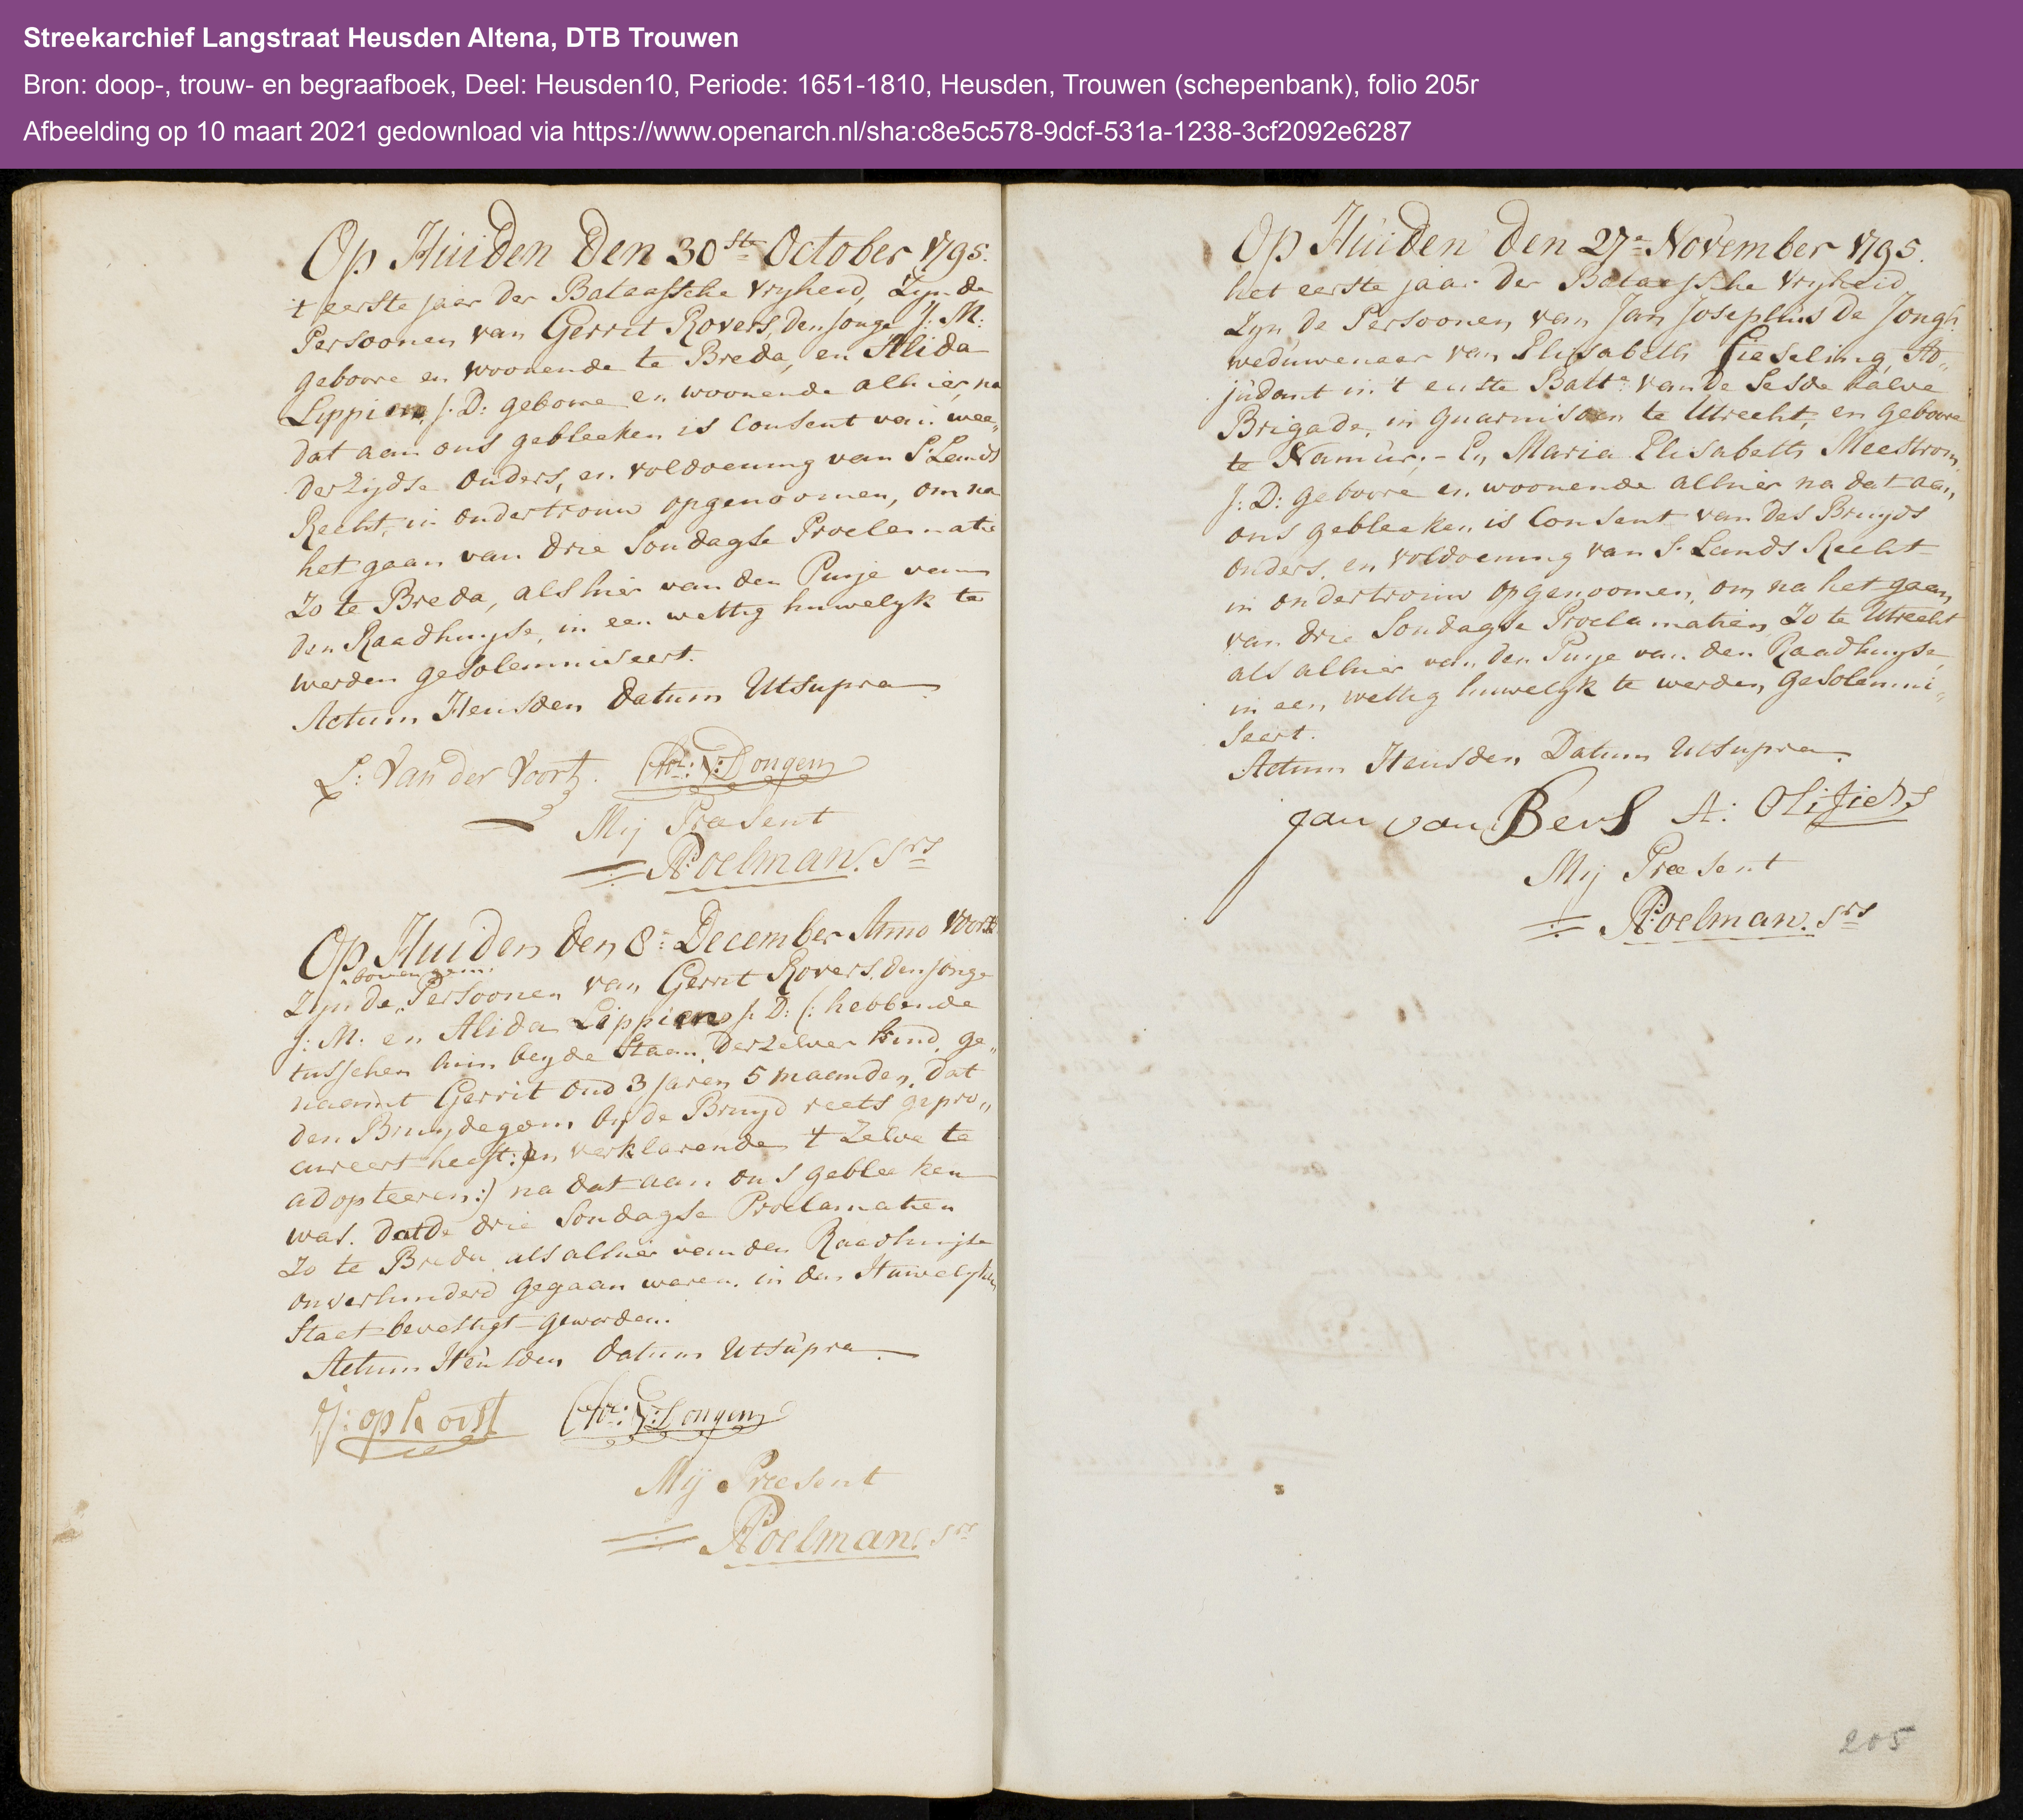 Streekarchief Langstraat Heusden Altena, DTB Trouwen
Bron: doop-, trouw- en begraafboek, Deel: Heusden10, Periode: 1651-1810, Heusden, Trouwen (schepenbank), folio 205r
Afbeelding op 10 maart 2021 gedownload via https://www.openarch.nl/sha:c8e5c578-9dcf-531a-1238-3cf2092e6287
Op Huiden Den 30ste October 1795.
't eerste jaar der Bataafsche Vryheid, Zyn de
Persoonen van Gerrit Rovers, den Jonge J: M:
geboore en woonende te Breda, en Alida
Lippien J: D: geboore en woonende alhier, na
dat aan ons gebleeken is Consent van wee„
derzydse Ouders, en voldoening van S: Lands
Recht, in ondertrouw opgenoomen, om na
het gaan van drie Sondagse Proclamatie
Zo te Breda, als hier van den Puije van
den Raadhuyse, in een wettig huwelyk te
werden gesolemniseert.
Actum Heusden Datum Utsupra
L: Van der Voort. Chr: V: Dongen
Mij Præsent
P: Roelman. Srs
Op Huiden den 8e December Anno Voorsz
boven gem:
Zyn de Persoonen van Gerrit Rovers, den Jonge
J: M: en Alida Lippien J: D: (: hebbende
tusschen hun beyde Staan, Derzelver kind, ge„
naamt Gerrit Oud 3 Jaren 5 maanden, dat
den Bruydegom by de Bruyd reets gepro„
cureert heeft:) en verklarende 't Zelve te
adopteeren:) na dat aan ons gebleeken
was. dat de drie Sondagse Proclamatien
Zo te Breda, als alhier van den Raadhuyse
onverhinderd gegaan waren, in den Huwelyken
Staat bevestigt geworden.
Actum Heusden Datum Utsupra
J: ophorst Chr: V: Dongen
Mij Præsent
P: Roelman. Srs
Op Huiden den 27e November 1795.
het eerste jaar der Bataafsche Vryheid
Zyn de Persoonen van Jan Josephus De Jongh
weduwenaar van Elisabeth Gieseling, Ad„
judant in 't eerste Batt:n van de Sesde halve
Brigade, in guarnisoen te Utrecht, en geboore
te Namur. - En Maria Elisabeth Meestrom
J: D: geboore en woonende alhier na dat aan
ons gebleeken is Consent van des Bruyds
Ouders, en voldoening van S: Lands Recht
in ondertrouw opgenoomen, om na het gaan
van drie Sondagse Proclamatien, Zo te Utrecht
als alhier van den Puije van den Raadhuyse
in een wettig huwelyk te werden gesolemni„
seert.
Actum Heusden Datum Utsupra.
Jan van Bers A:
Mij Præsent
P: Roelman. Srs
205